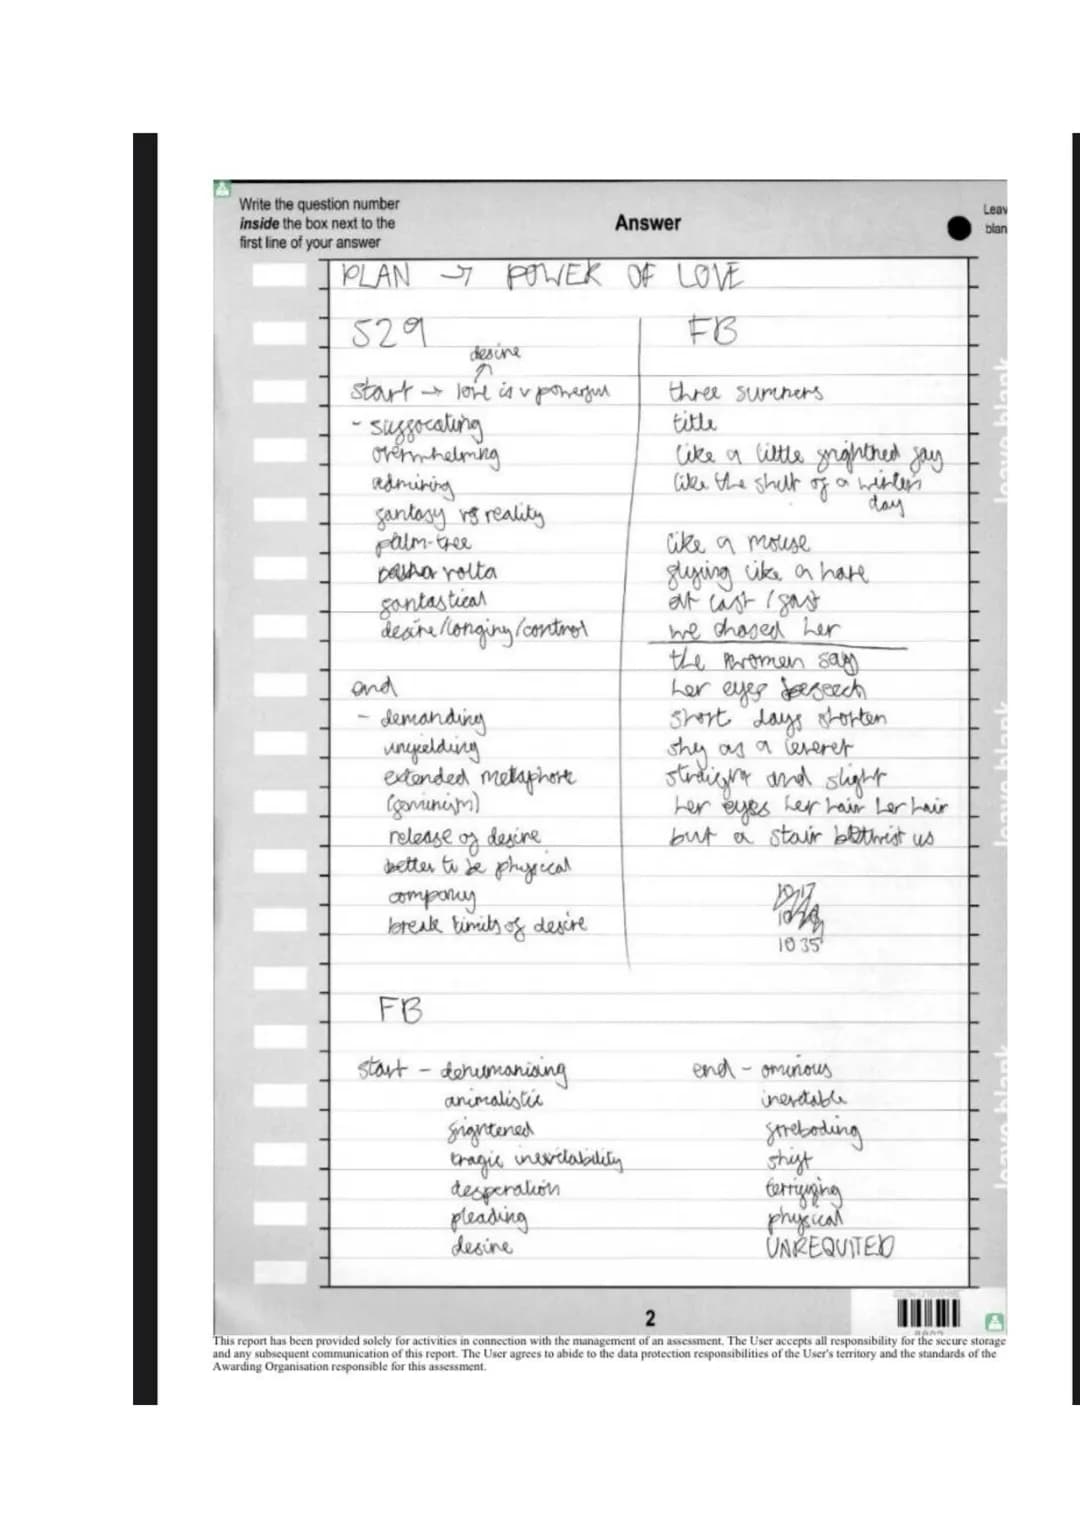 Write the question number
inside the box next to the
first line of your answer
Answer
Leav
blan
PLAN → POWER OF LOVE
S29
FB
desire
start → love is v powerful
- suffocating
overwhelming
admiring
fantasy vs reality
palm-tree
volta
fantastical
desire/longing/control
end
- demanding
unyielding
extended metaphor
(feminism)
release of desire
better to be physical
company
break limits of desire
three summers
title
like a little frightned fay
like the shut of a winter's
day
like a mouse
flying like a hare
at last / fast
we chased her
the women say
her eyes beseech
short days shorten
shy as a leveret
straight and slight
her eyes her hair her hair
but a stair betwixt us
10 35
FB
start - dehumanising
animalistic
frightened
tragic inevitability
desperation
pleading
desire
end - ominous
inevitable
foreboding
shift
terrifying
physical
UNREQUITED
leave blank
leave blank
leave blank
2
This report has been provided solely for activities in connection with the management of an assessment. The User accepts all responsibility for the secure storage
and any subsequent communication of this report. The User agrees to abide to the data protection responsibilities of the User's territory and the standards of the
Awarding Organisation responsible for this assessment.